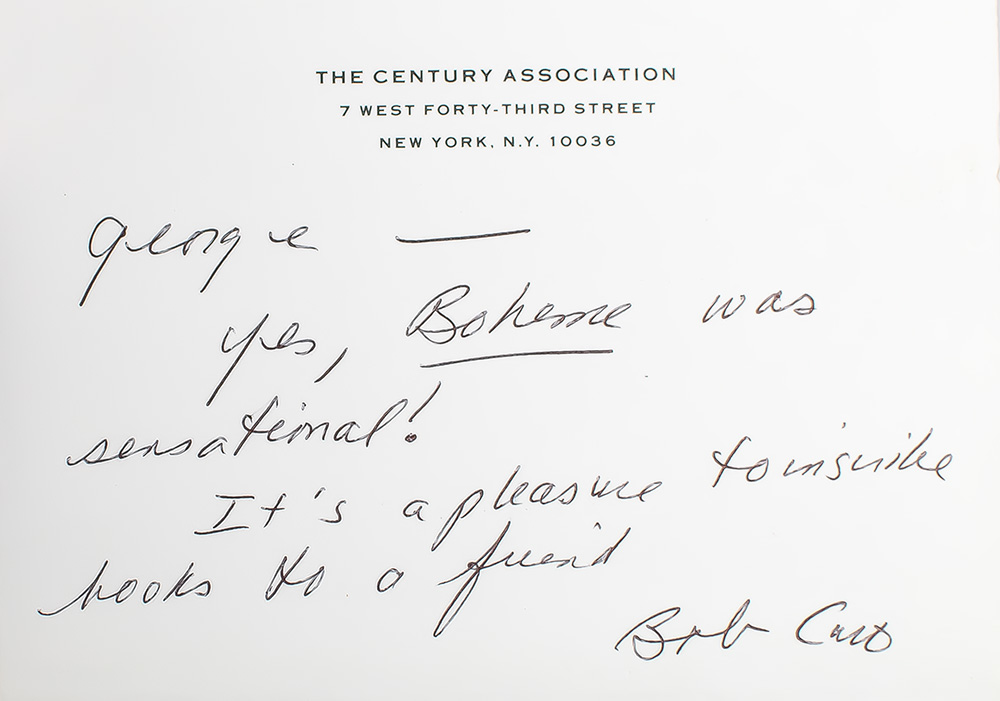 THE CENTURY ASSOCIATION
7 WEST FORTY-THIRD STREET
NEW YORK, N.Y. 10036
George —
Yes, Boheme was
sensational!
It's a pleasure to inscribe
books to a friend
Bob Caro